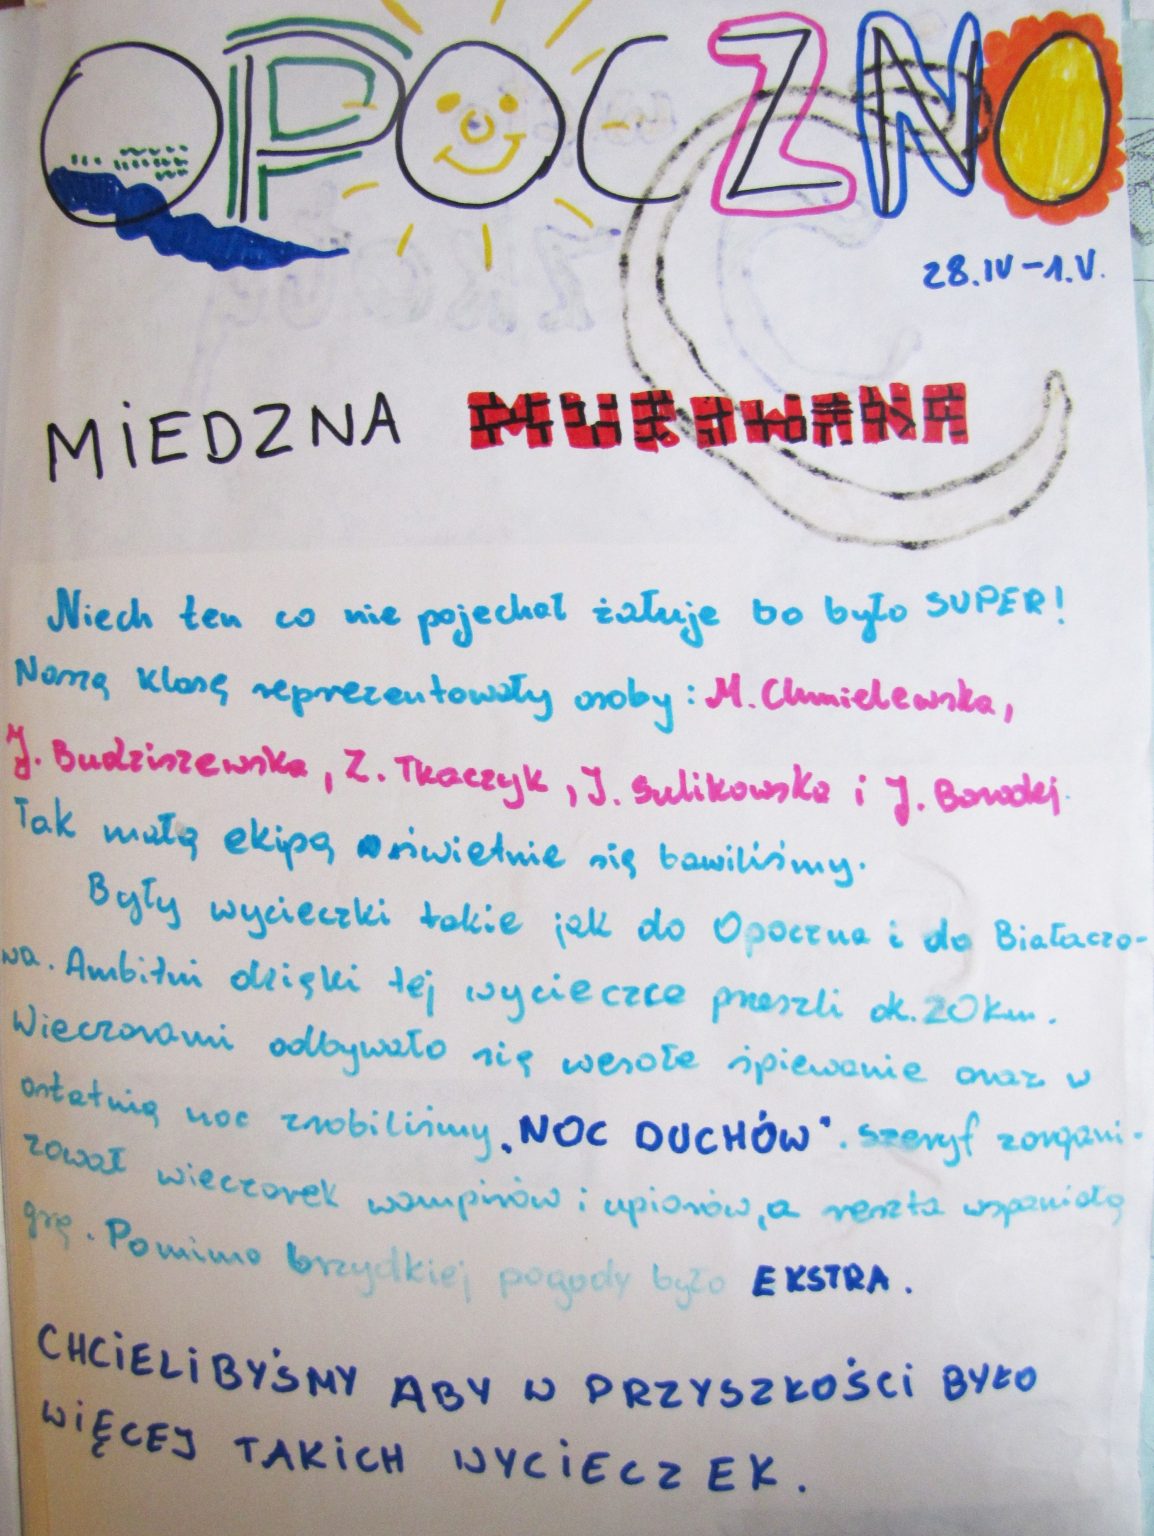 OPOCZNO
28.IV – 1.V.
MIEDZNA MUROWANA
Niech ten co nie pojechał żałuje bo było SUPER!
Naszą klasę reprezentowały osoby: M. Chmielewska,
J. Budziszewska, Z. Tkaczyk, J. Sulikowska i J. Borodej.
Tak małą ekipą świetnie się bawiliśmy.
Były wycieczki takie jak do Opoczna i do Białaczo-
wa. Ambitni dzięki tej wycieczce przeszli ok. 20 km.
Wieczorami odbywało się wesołe śpiewanie oraz w
ostatnią noc zrobiliśmy „NOC DUCHÓW". Szeryf zorgani-
zował wieczorek wampirów i upiorów, a reszta wspaniałą
grę. Pomimo brzydkiej pogody było EKSTRA.
CHCIELIBYŚMY ABY W PRZYSZŁOŚCI BYŁO
WIĘCEJ TAKICH WYCIECZEK.